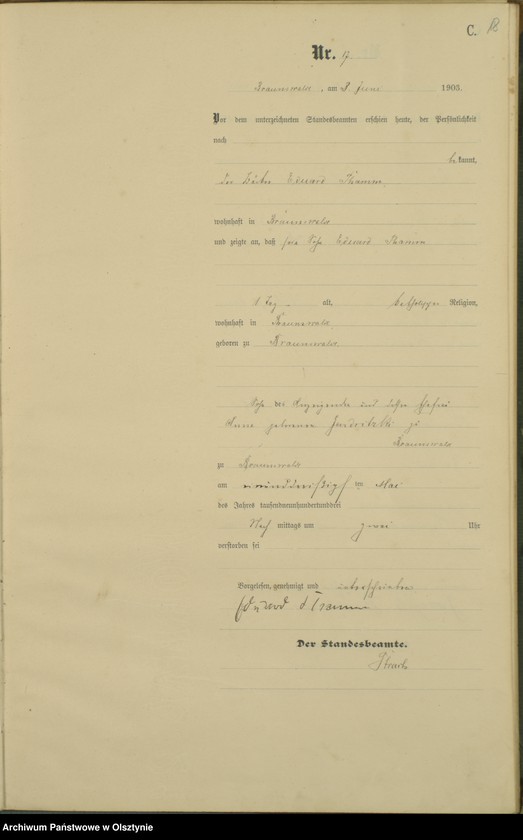 C.
Nr. 17
Braunswalde, am 2. Juni 1903.
Vor dem unterzeichneten Standesbeamten erschien heute, der Persönlichkeit
nach
bekannt,
der Eduard Thamm
wohnhaft in Braunswalde
und zeigte an, daß sein Sohn Eduard Thamm
1 Tag alt, katholischer Religion,
wohnhaft in Braunswalde
geboren zu Braunswalde
Sohn des Anzeigenden und dessen Ehefrau
Anna geborenen zu
Braunswalde
zu Braunswalde
am einunddreißigsten Mai
des Jahres tausendneunhundertunddrei
Nach mittags um zwei Uhr
verstorben sei
Vorgelesen, genehmigt und unterschrieben
Eduard Thamm
Der Standesbeamte.
Archiwum Państwowe w Olsztynie